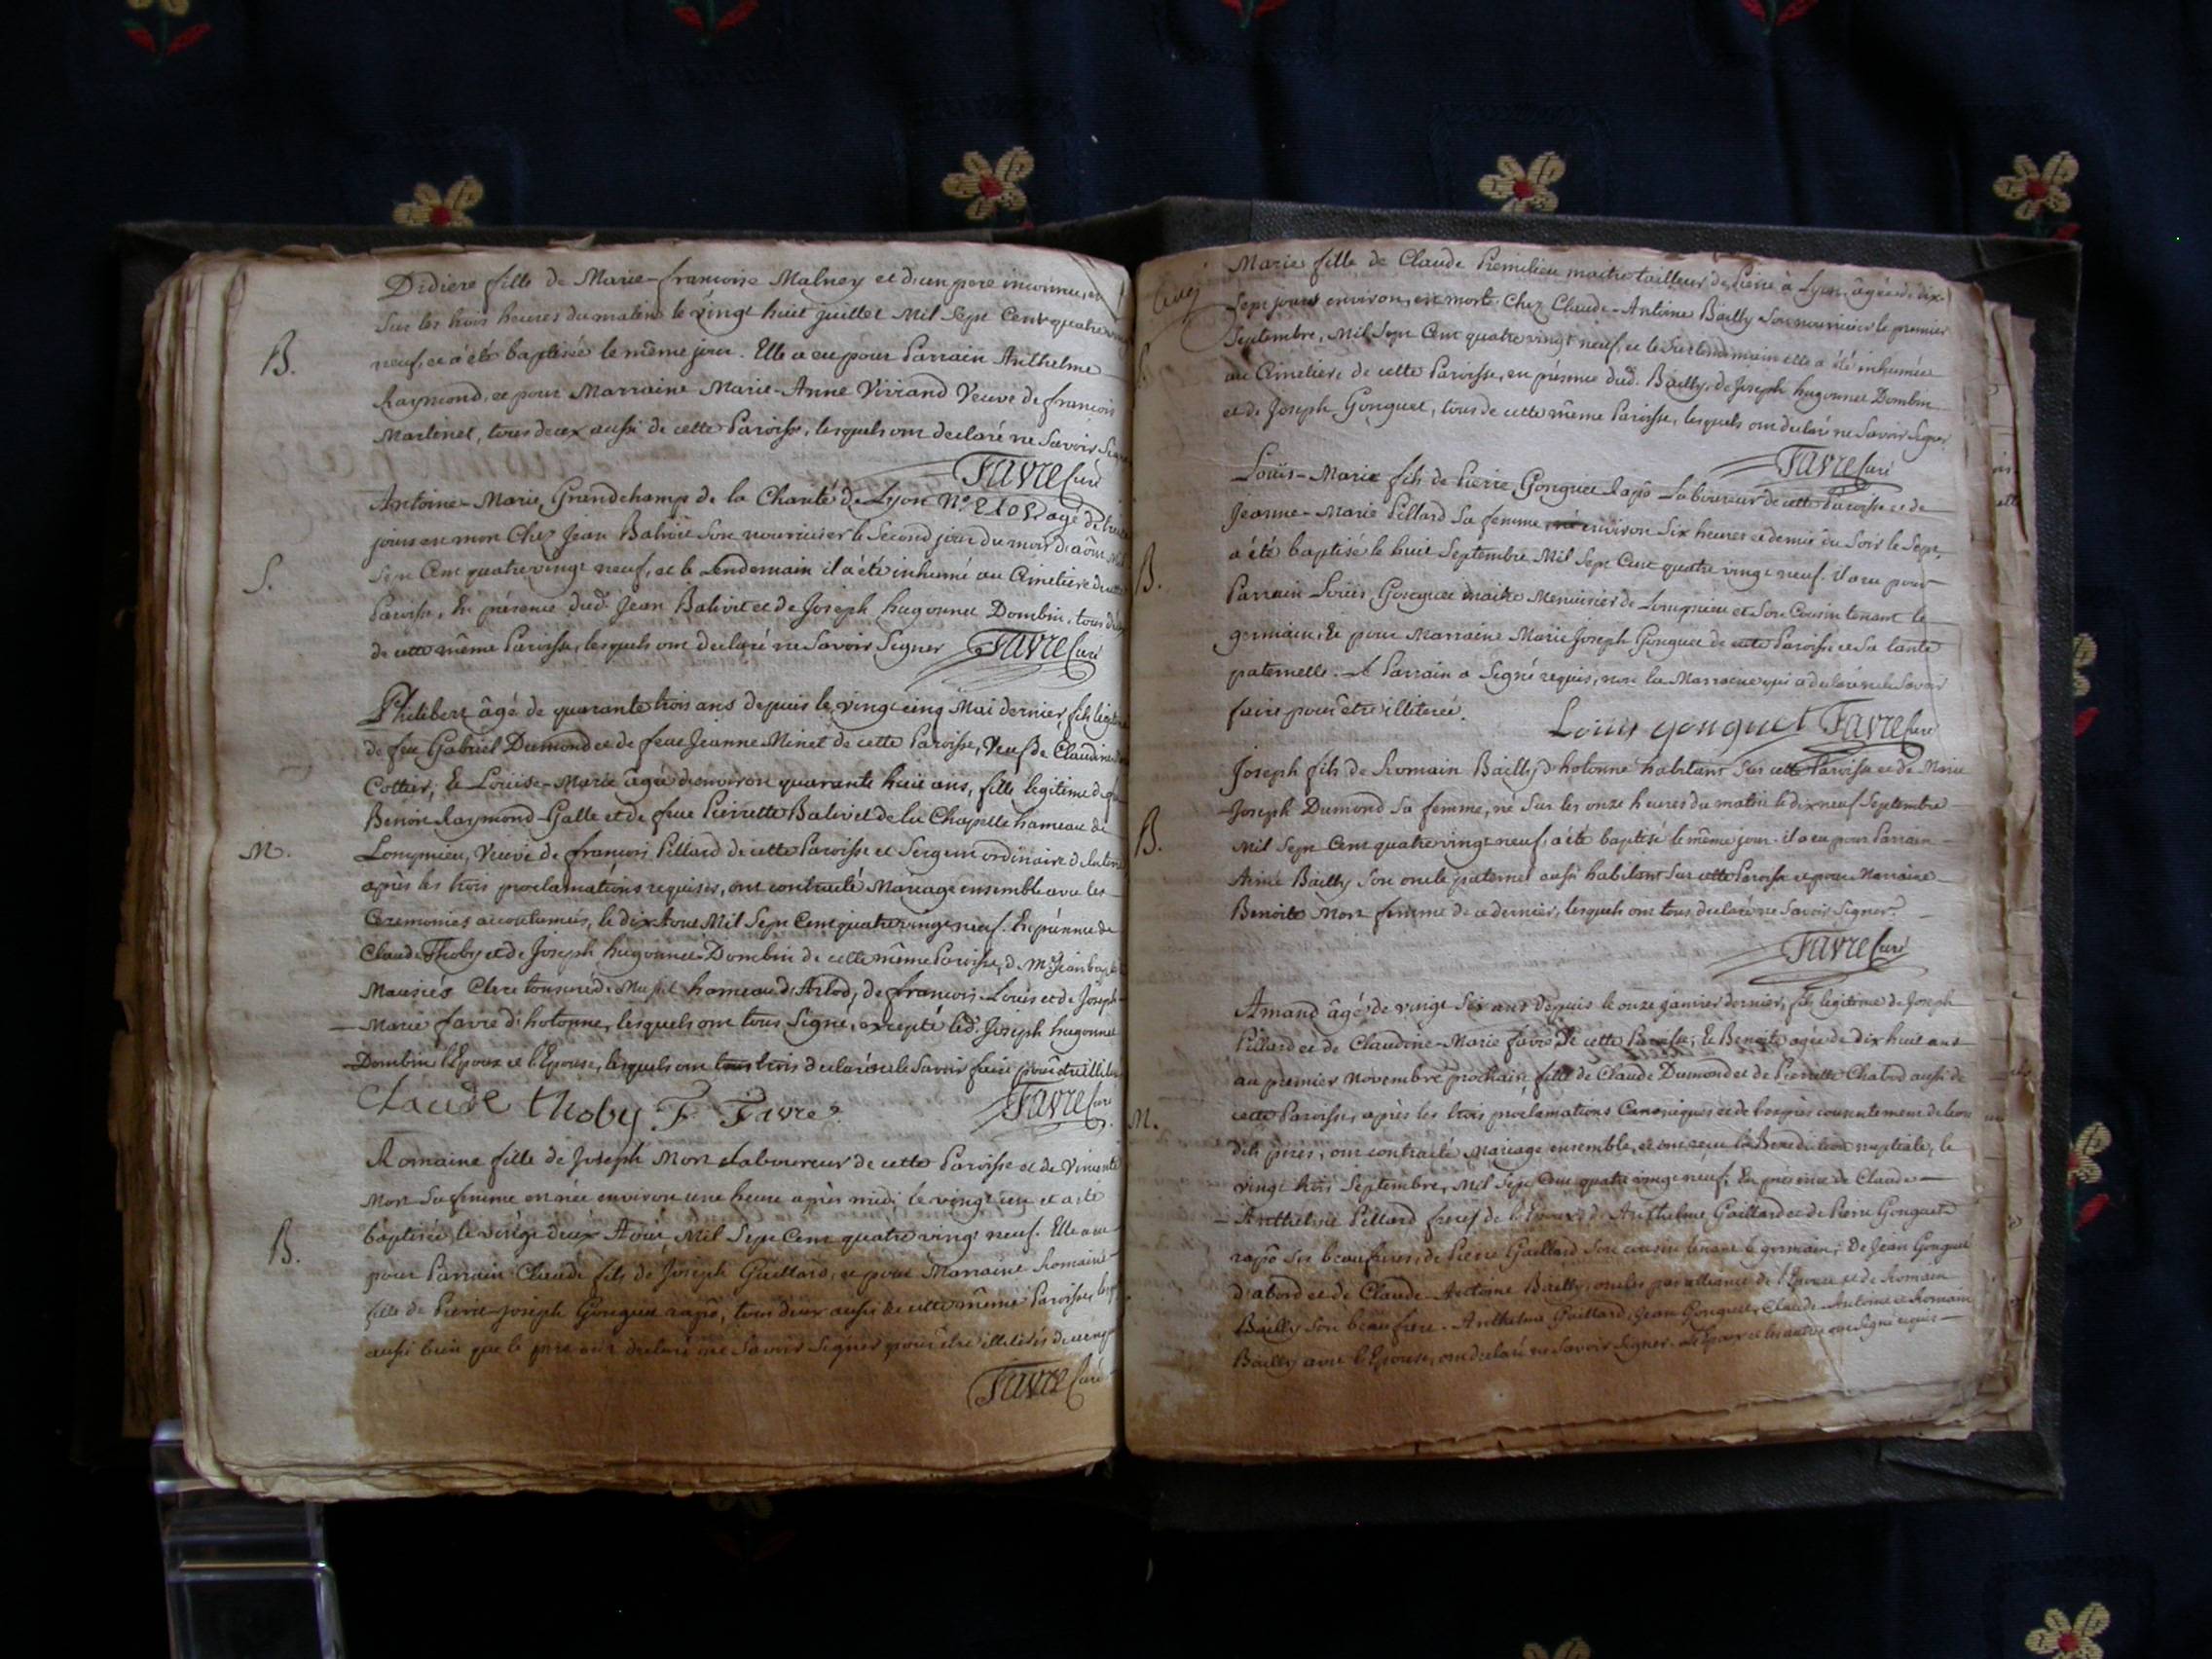 Didiere fille de Marie-francoise Malney et d'un pere inconnu, en
sur les trois heures du matin le vingt huit juillet Mil Sept Cent quatre
B. neuf, et a été baptisée le même jour. Elle a eu pour Parrain Anthelme
Raymond, et pour Marraine Marie-Anne Viviand Veuve de francois
Martinet, tous deux aussi de cette Paroisse, lesquels ont declaré ne Savoir
Favre Curé
Antoine-Marie Grandchamp de la Charité de Lyon N.º agé de
jours est mort Chez Jean Balivet Son nourricier le Second jour du mois d'aôut
S. Sept Cent quatre vingt neuf, et le Lendemain il a été inhumé au Cimetiere de
Paroisse, En présence dud. Jean Balivet et de Joseph hugonnet Dombin, tous
de cette même Paroisse, lesquels ont declaré ne Savoir Signer Favre Curé
Philibert âgé de quarante trois ans depuis le vingt cinq Mai dernier, fils
de feu Gabriel Dumond et de feue Jeanne Minet de cette Paroisse, Veuf de Claudine
Cottier; Et Louise-Marie âgée d'environ quarante huit ans, fille legitime de
Benoit Raymond-Galle et de feue Pierrette Balivet de la Chapelle hameau de
M. Lompnieu, Veuve de francois Pillard de cette Paroisse et Sergent ordinaire de
après les trois proclamations requises, ont contracté Mariage ensemble avec les
Ceremonies accoutumées, le dix Aout Mil Sept Cent quatre vingt neuf. En présence de
Claude Thoby et de Joseph hugonnet-Dombin de cette même Paroisse, de Mre Jean
Clerc tonsuré de hameau d'Arlod, de francois-Louis et de Joseph
Marie favre d'hotonne, lesquels ont tous Signé, excepté led. Joseph hugonnet
Dombin l'Epoux et l'Epouse, lesquels ont tous trois declaré ne le Savoir faire pour être
Claude thoby F. Favre Favre Curé
Romaine fille de Joseph Mort Laboureur de cette Paroisse et de Vincente
Mort Sa femme est née environ une heure après midi le vingt un et a été
baptisée le vingt deux Aout Mil Sept Cent quatre vingt neuf. Elle a eu
B. pour Parrain Claude fils de Joseph Guillard, et pour Marraine Romaine
fille de Pierre-Joseph Gonguet rapô, tous deux aussi de cette même Paroisse,
aussi bien que le pere ont declaré ne Savoir Signer pour être illiterés de
Favre Curé
Marie fille de Claude Premilieu maitre tailleur de Pierre à Lyon, âgée de dix-
Sept jours environ, est morte Chez Claude-Antoine Bailly Son nourricier le premier
Septembre, Mil Sept Cent quatre vingt neuf, et le Surlendemain elle a été inhumée
au Cimetiere de cette Paroisse, en présence dud. Bailly, de Joseph hugonnet Dombin
et de Joseph Gonguet, tous de cette même Paroisse, lesquels ont declaré ne Savoir Signer
Favre Curé
Louis-Marie fils de Pierre Gonguet Rapô Laboureur de cette Paroisse et de
Jeanne-Marie Pillard Sa femme, né environ Six heures et demie du Soir le Sept,
a été baptisé le huit Septembre Mil Sept Cent quatre vingt neuf. il a eu pour
B. Parrain Louis Gonguet maitre Menuisier de Lompnieu et Son Cousin tenant le
germain, Et pour Marraine Marie Joseph Gonguet de cette Paroisse et Sa tante
paternelle. Le Parrain a Signé requis, non la Marraine qui a declaré ne le Savoir
faire pour être illiterée.
Louis gonguet Favre Curé
Joseph fils de Romain Bailly d'hotonne habitant Sur cette Paroisse et de Marie
Joseph Dumond Sa femme, né Sur les onze heures du matin le dix neuf Septembre
B. Mil Sept Cent quatre vingt neuf, a été baptisé le même jour. il a eu pour Parrain
Aimé Bailly Son oncle paternel aussi habitant Sur cette Paroisse et pour Marraine
Benoite Mort femme de ce dernier, lesquels ont tous declaré ne Savoir Signer.
Favre Curé
Amand âgé de vingt Six ans depuis le onze janvier dernier, fils legitime de Joseph
Pillard et de Claudine-Marie favre de cette Paroisse; Et Benoite agée de dix huit ans
au premier Novembre prochain fille de Claude Dumond et de Pierrette Chabod aussi de
M. cette Paroisse, après les trois proclamations Canoniques et de l'exprès consentement de leurs
dits pères, ont contracté Mariage ensemble, et ont reçu la Benediction nuptiale, le
vingt trois Septembre, Mil Sept Cent quatre vingt neuf. En présence de Claude
Anthelme Pillard frere de l'Epoux, de Anthelme Gaillard et de Pierre Gonguet
rapô Ses beaufreres, de Pierre Gaillard Son cousin tenant le germain; De Jean Gonguet
d'abord et de Claude-Antoine Bailly, oncles par alliance de l'Epouse et de Romain
Bailly Son beaufrere. Anthelme Gaillard, Jean Gonguet, Claude-Antoine et Romain
Bailly avec l'Epouse, ont declaré ne Savoir Signer. L'Epoux et les autres ont Signé requis